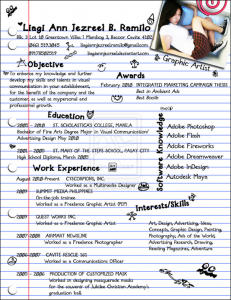 Liagi Ann Jezreel B. Ramilo
Blk. 3 Lot 10 Greentown Villas 1 Mambog 3, Bacoor Cavite 4102
Graphic Artist
Objective
To enhance my knowledge and further
develop my skills and talents in visual
communication in your establishment,
for the benefit of the company and the
customer, as well as my personal and
professional growth.
Awards
February 2010 INTEGRATED MARKETING CAMPAIGN THESIS
Best in Ambient Ads
Best Booth
Education
2006 - 2010 ST. SCHOLASTICA'S COLLEGE, MANILA
Bachelor of Fine Arts Degree Major in Visual Communication/
Advertising Design May 2010
2001 - 2005 ST. MARY OF THE STEPS SCHOOL, PASAY CITY
High School Diploma, March 2005
Software Knowledge
Adobe Photoshop
Adobe Flash
Adobe Fireworks
Adobe Dreamweaver
Adobe InDesign
Autodesk Maya
Work Experience
August 2010-Present
Worked as a Multimedia Designer
2009 SUMMIT MEDIA PHILIPPINES
On-the-job trainee
Worked as a Freelance Graphic Artist
2009 GUEST WORX INC.
Worked as a Freelance Graphic Artist
Worked as a Freelance Photographer
2006-2007 CAVITE-RESCUE 161
Worked as a Communications Officer
2005 - 2006 PRODUCTION OF CUSTOMIZED MASK
Worked in designing masquerade masks
for the souvenir of Jubilee Christian Academy's
graduation ball.
Interests/Skills
Art, Design, Advertising, Ideas,
Concepts, Graphic Design, Painting,
Photography, Ads of the World,
Advertising Research, Drawing,
Reading Magazines, Adventure